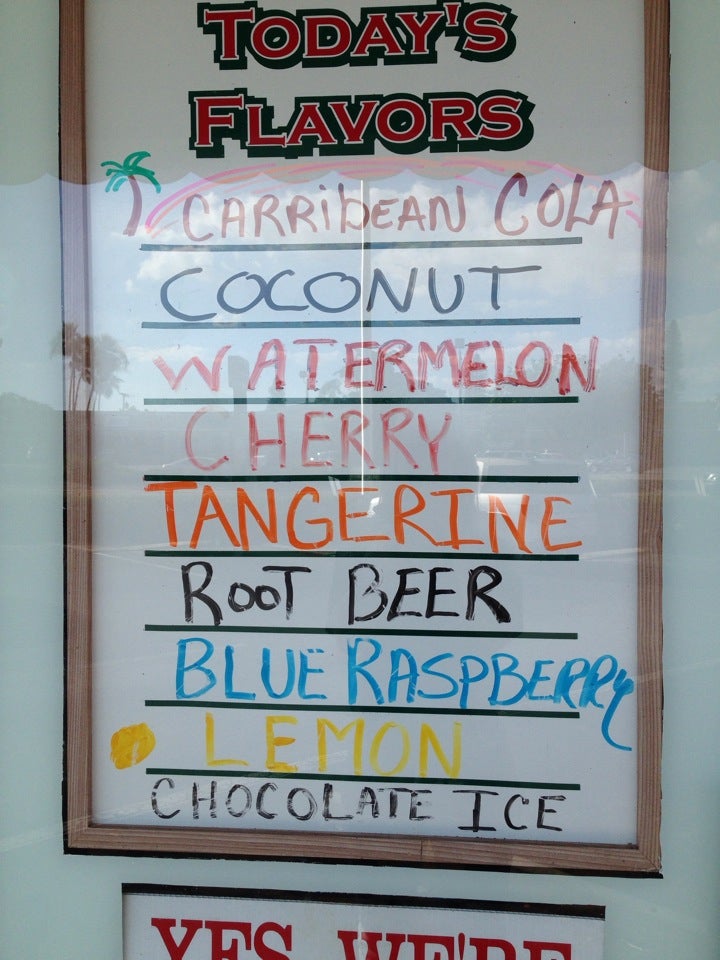 TODAY'S
FLAVORS
CARRIBEAN COLA
COCONUT
WATERMELON
CHERRY
TANGERINE
ROOT BEER
BLUE RASPBERRY
LEMON
CHOCOLATE ICE
YES WE'RE